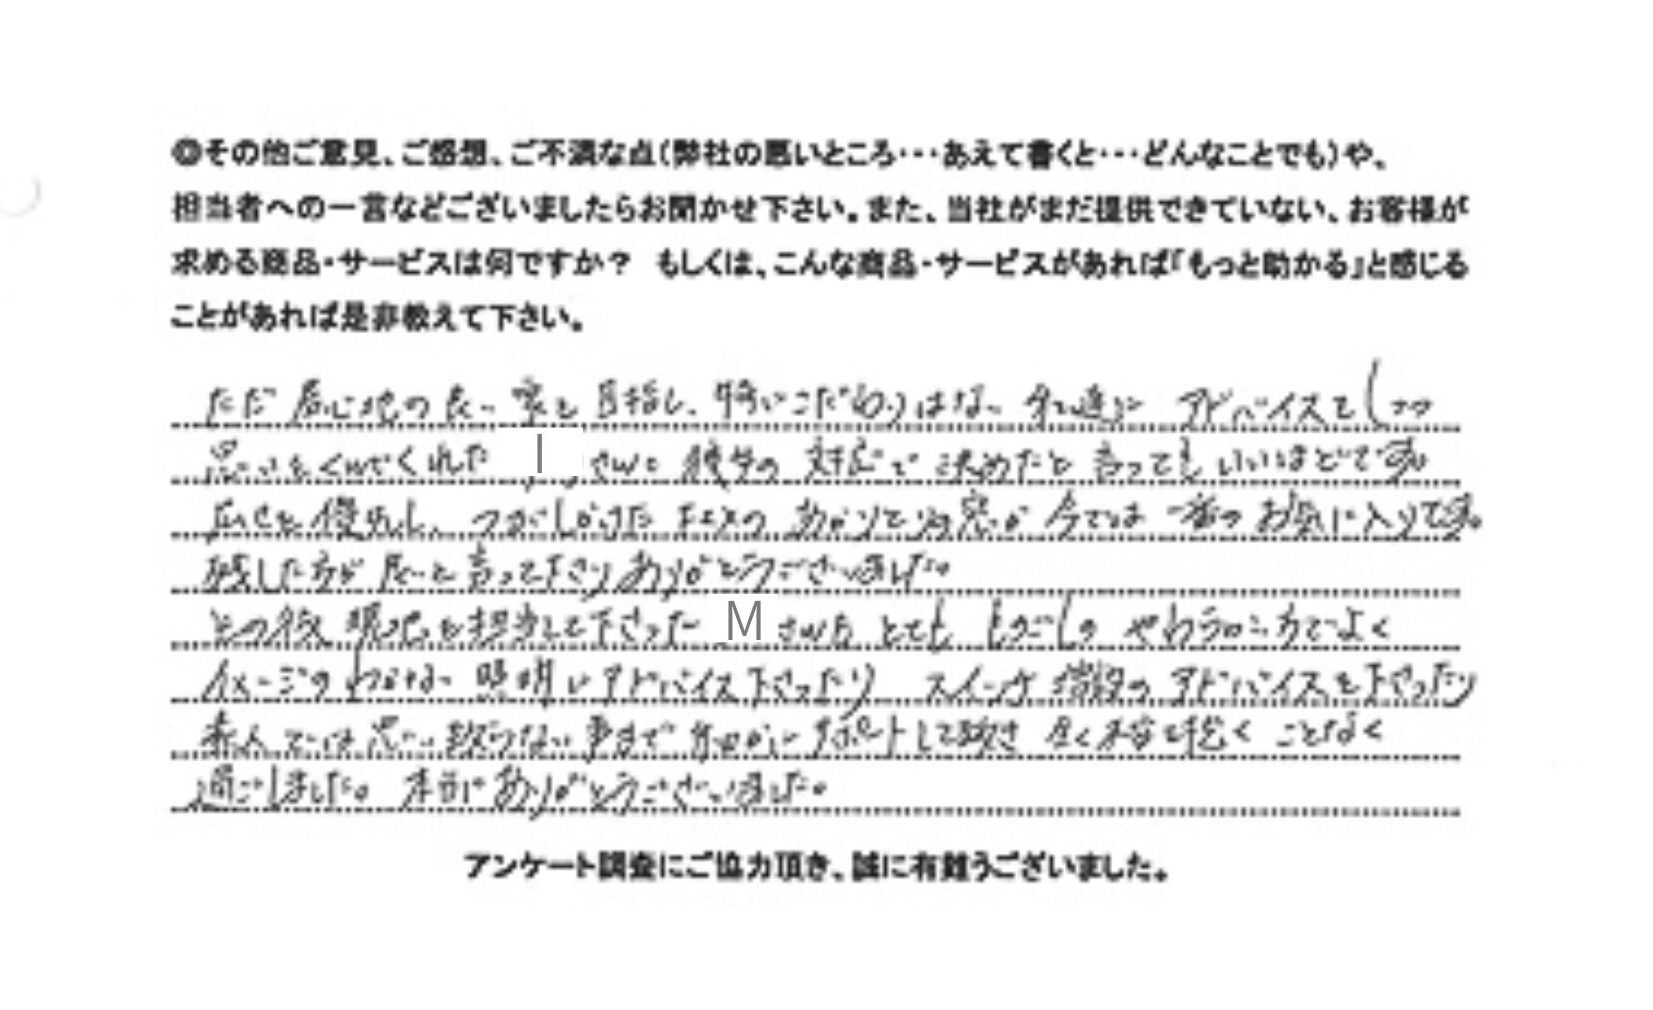 ◎その他ご意見、ご感想、ご不満な点(弊社の悪いところ・・・あえて書くと・・・どんなことでも)や、
担当者への一言などございましたらお聞かせ下さい。また、当社がまだ提供できていない、お客様が
求める商品・サービスは何ですか？ もしくは、こんな商品・サービスがあれば『もっと助かる』と感じる
ことがあれば是非教えて下さい。
ただ 居心地の良い 家を 目指し、特に こだわりはない 私達に アドバイスをしつつ
思いをくんでくれた I さんと 彼女の 対応で 決めたと 言っても いいほどです。
広さを 優先し、つぶしかけた あかりとり窓が 今では 一番の お気に入りです。
残した方が 良いと 言って下さり ありがとうございました。
その後 現場を担当して下さった M さんも とても ものごしの やわらかい方で よく
イメージの わかない 照明に アドバイス下さったり スイッチ 増設の アドバイスを下さったり
素人では 思い至らない 事まで サポートして頂き 全く 不安を抱く ことなく
過ごしました。 本当に ありがとうございました。
アンケート調査にご協力頂き、誠に有難うございました。